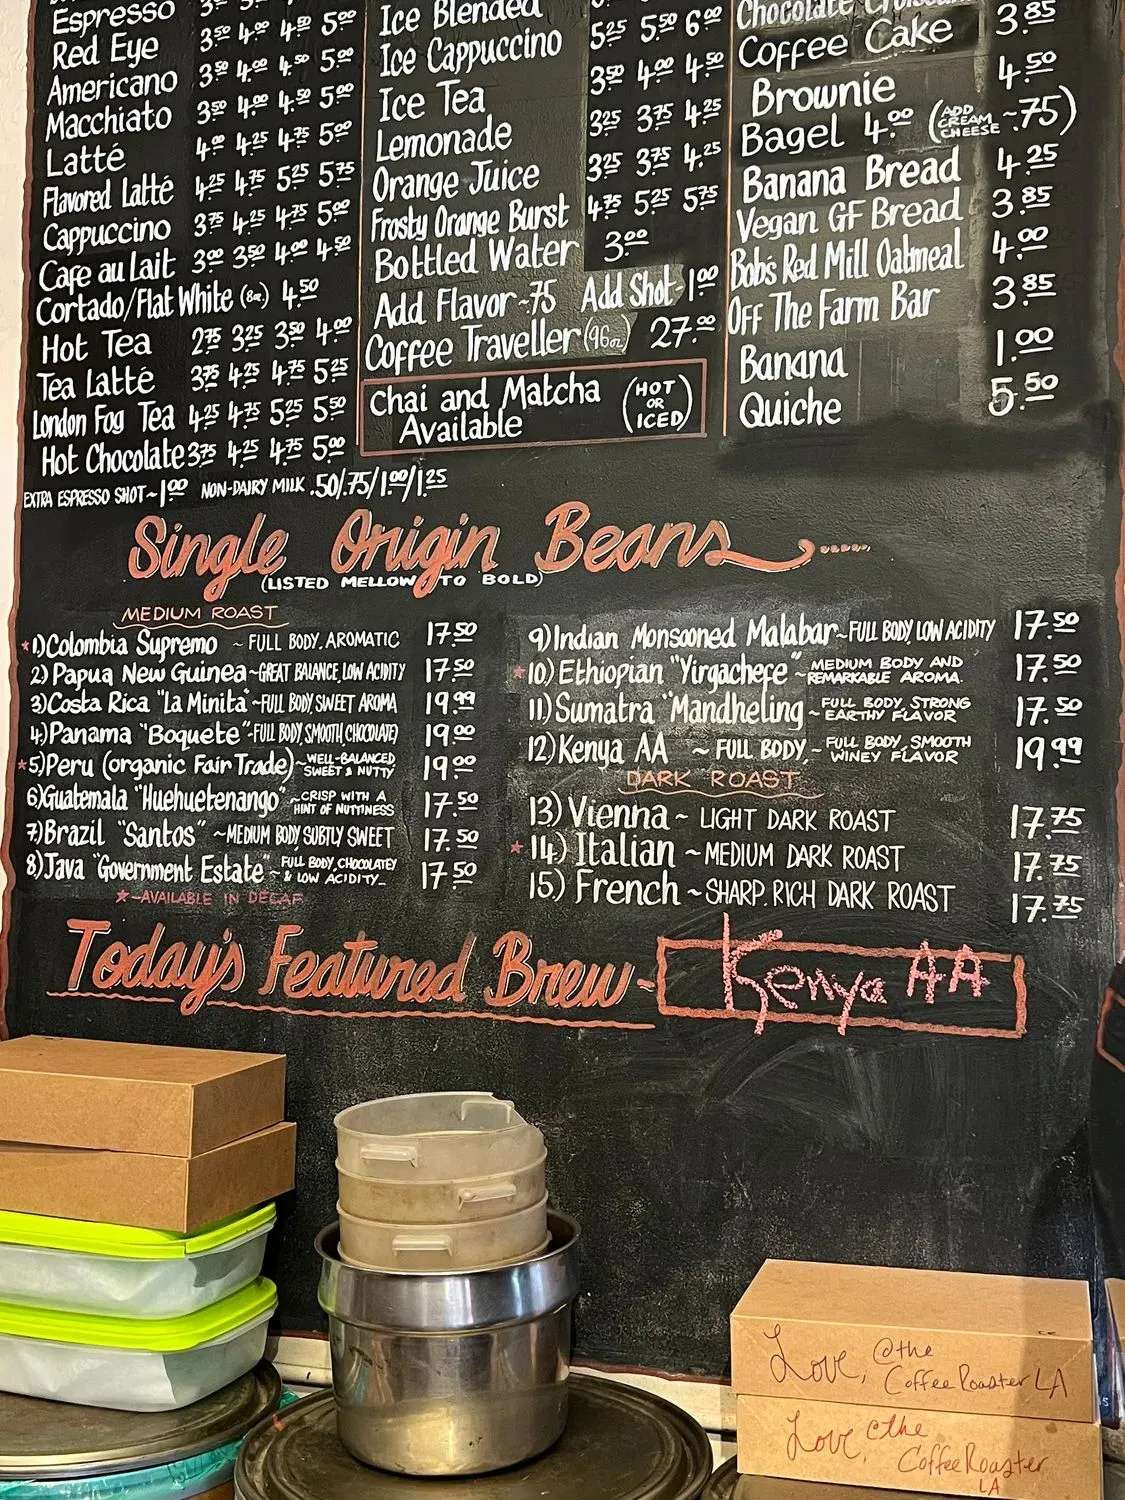 Espresso
Red Eye 3.50 4.00 4.50 5.00
Americano 3.50 4.00 4.50 5.00
Macchiato 3.50 4.00 4.50 5.00
Latté 4.00 4.25 4.75 5.00
Flavored Latté 4.25 4.75 5.25 5.75
Cappuccino 3.75 4.25 4.75 5.00
Cafe au Lait 3.00 3.50 4.00 4.50
Cortado/Flat White (8oz) 4.50
Hot Tea 2.75 3.25 3.50 4.00
Tea Latté 3.75 4.25 4.75 5.25
London Fog Tea 4.25 4.75 5.25 5.50
Hot Chocolate 3.75 4.25 4.75 5.00
EXTRA ESPRESSO SHOT ~ 1.00 NON-DAIRY MILK .50/.75/1.00/1.25
Ice Blended
Ice Cappuccino 5.25 5.50 6.00
Ice Tea 3.50 4.00 4.50
Lemonade 3.25 3.75 4.25
Orange Juice 3.25 3.75 4.25
Frosty Orange Burst 4.75 5.25 5.75
Bottled Water 3.00
Add Flavor ~.75 Add Shot ~ 1.00
Coffee Traveller (96oz) 27.00
Chai and Matcha (HOT
OR
Available ICED)
Chocolate
Coffee Cake 3.85
Brownie 4.50
Bagel 4.00 (ADD CREAM CHEESE ~.75)
Banana Bread 4.25
Vegan GF Bread 3.85
Bob's Red Mill Oatmeal 4.00
Off The Farm Bar 3.85
Banana 1.00
Quiche 5.50
Single Origin Beans.....
(LISTED MELLOW TO BOLD)
MEDIUM ROAST
★1) Colombia Supremo ~ FULL BODY, AROMATIC 17.50
2) Papua New Guinea ~ GREAT BALANCE, LOW ACIDITY 17.50
3) Costa Rica "La Minita" ~ FULL BODY, SWEET AROMA 19.99
4) Panama "Boquete" ~ FULL BODY, SMOOTH, CHOCOLATEY 19.00
★5) Peru (organic Fair Trade) ~ WELL-BALANCED, SWEET & NUTTY 19.00
6) Guatemala "Huehuetenango" ~ CRISP WITH A HINT OF NUTTINESS 17.50
7) Brazil "Santos" ~ MEDIUM BODY, SUBTLY SWEET 17.50
8) Java "Government Estate" ~ FULL BODY, CHOCOLATEY & LOW ACIDITY 17.50
★ - AVAILABLE IN DECAF
9) Indian Monsooned Malabar ~ FULL BODY, LOW ACIDITY 17.50
★10) Ethiopian "Yirgachefe" ~ MEDIUM BODY AND REMARKABLE AROMA. 17.50
11) Sumatra "Mandheling ~ FULL BODY, STRONG EARTHY FLAVOR 17.50
12) Kenya AA ~ FULL BODY, - FULL BODY, SMOOTH WINEY FLAVOR 19.99
DARK ROAST
13) Vienna ~ LIGHT DARK ROAST 17.75
★14) Italian ~ MEDIUM DARK ROAST 17.75
15) French ~ SHARP, RICH DARK ROAST 17.75
Today's Featured Brew - Kenya AA
Love, @the
CoffeeRoaster LA
Love, @the
CoffeeRoaster
LA